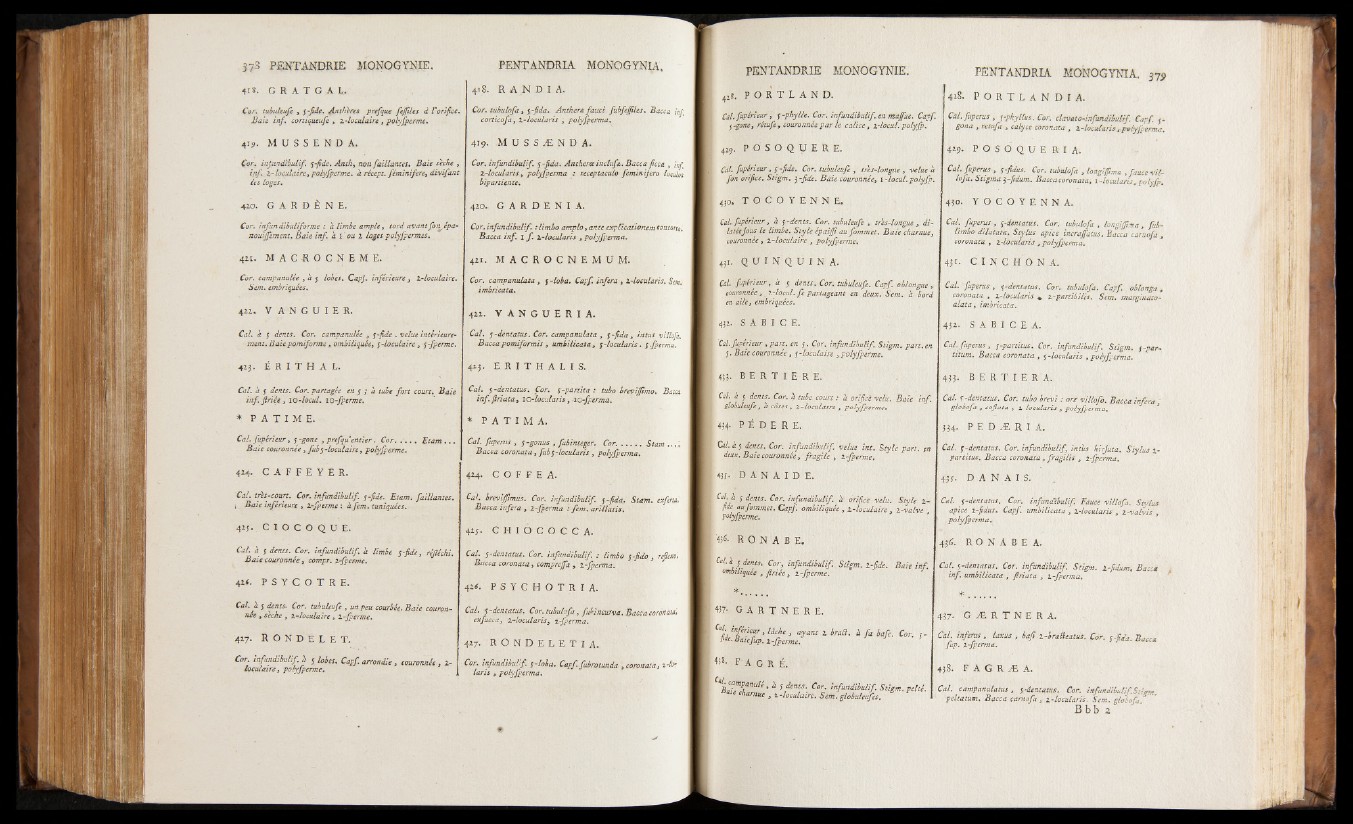 378 PENTANDRIE MONOGYNIE.
418. GRATGAL.
Cor. tubuleuſe, 5-fide. Anthères preſque ſeſſiles à l'orifice.
Baie inf. cortiqueuſe, 2-loculaire, polyſperme.
419. MUSSENDA.
Cor. infundibulif. 5-fide. Anth. non ſaillantes. Baie sèche,
inf. 2-loculaire, polyſperme. à récept. ſeminifere, diviſant
les loges.
420. GARDÈNE.
Cor. infundibuliforme : à limbe ample, tord avant ſon épa-
nouiſſement. Baie inf. à 1 ou 2 loges polyſpermes.
421. MACROCNEME.
Cor. campanulée, à 5 lobes. Capſ. inférieure, 2-loculaire.
Sem. embriquées.
422. VANGUIER.
Cal. à 5 dents. Cor. campanulée, 5-fide. velue intérieure-
ment. Baie pomiforme, ombiliquée, 5-loculaire, 5-ſperme.
423. ÉRITHAL.
Cal. à 5 dents. Cor. partagée en 5 ; à tube fort court. Baie
inf. ſtriée, 10-locul. 10-ſperme.
* PATIME.
Cal. ſupérieur, 5-gone, preſqu'entier. Cor. . . . . Etam . . .
Baie couronnée, ſub5-loculaire, polyſperme.
424. CAFFEYER.
Cal. très-court. Cor. infundibulif. 5-fide. Etam. ſaillantes.
Baie inférieure, 2-ſperme : à ſem. tuniquées.
425. CIOCOQUE.
Cal. à 5 dents. Cor. infundibulif. à limbe 5-fide, réfléchi.
Baie couronnée, compr. 2-ſperme.
426. PSYCOTRE.
Cal. à 5 dents. Cor. tubuleuſe, un peu courbée. Baie couron-
née, sèche, 2-loculaire, 2-ſperme.
427. RONDELET.
Cor. infundibulif. à 5 lobes. Capſ. arrondie, couronnée, 2-
loculaire, polyſperme.
PENTANDRIA MONOGYNIA.
418. RANDIA.
Cor. tubuloſa, 5-fida. Antheræ fauci ſubſeſſiles. Bacca inf.
corticoſa, 2-locularis, polyſperma.
419. MUSSÆNDA.
Cor. infundibulif. 5-fida. Antheræ incluſæ. Bacca ſicca, inf.
2-locularis, polyſperma : receptaculo ſeminifero loculos
bipartiente.
420. GARDENIA.
Cor. infundibulif. : limbo amplo, ante explicationem contorto.
Bacca inf. 1 ſ. 2-locularis, polyſperma.
421. MACROCNEMUM.
Cor. campanulata, 5-loba. Capſ. infera, 2-locularis. Sem.
imbricata.
422. VANGUERIA.
Cal. 5-dentatus. Cor. campanulata, 5-fida, intus villoſa.
Bacca pomiformis, umbilicata, 5-locularis. 5 ſperma.
423. ERITHALIS.
Cal. 5-dentatus. Cor. 5-partita : tubo breviſſimo. Bacca
inf. ſtriata, 10-locularis, 10-ſperma.
* PATIMA.
Cal. ſuperus, 5-gonus, ſubinteger. Cor. . . . . . Stam . . . .
Bacca coronata, ſub5-locularis, polyſperma.
424. COFFEA.
Cal. breviſſimus. Cor. infundibulif. 5-fida. Stam. exſerta.
Bacca infera, 2-ſperma : ſem. arillatis.
425. CHIOCOCCA.
Cal. 5-dentatus. Cor. infundibulif. : limbo 5-fido, reflexo.
Bacca coronata, compreſſa, 2-ſperma.
426. PSYCHOTRIA.
Cal. 5-dentatus. Cor. tubuloſa, ſubincurva. Bacca coronata,
exſucca, 2-locularis, 2-ſperma.
427. RONDELETIA.
Cor. infundibulif. 5-loba. Capſ. ſubrotunda, coronata, 2-lo-
laris, polyſperma.
PENTANDRIE MONOGYNIE.
428. PORTLAND.
Cal. ſupérieur, 5-phylle. Cor. infundibulif. en maſſue. Capſ.
5-gone, rétuſe, couronnée par le calice, 2-locul. polyſp.
429. POSOQUERE.
Cal. ſupérieur, 5-fide. Cor. tubuleuſe, très-longue, velue à
ſon orifice. Stigm. 3-fide. Baie couronnée, 1-locul. polyſp.
430. TOCOYENNE.
Cal. ſupérieur, à 5-dents. Cor. tubuleuſe, très-longue, di-
latée ſous le limbe. Style épaiſſi au ſommet. Baie charnue,
couronnée, 2-loculaire, polyſperme.
431. QUINQUINA.
Cal. ſupérieur, à 5 dents. Cor. tubuleuſe. Capſ. oblongue,
couronnée, 2-locul. ſe partageant en deux. Sem. à bord
en aile, embriquées.
432. SABICE.
Cal. ſupérieur, part. en 5. Cor. infundibulif. Stigm. part. en
5. Baie couronnée, 5-loculaire, polyſperme.
433. BERTIERE.
Cal. à 5 dents. Cor. à tube court : à orifice velu. Baie inf.
globuleuſe, à côtes, 2-loculaire, polyſperme.
434. PÉDERE.
Cal. à 5 dents. Cor. infundibulif. velue int. Style part. en
deux. Baie couronnée, fragile, 2-ſperme.
435. DANAIDE.
Cal. à 5 dents. Cor. infundibulif. à orifice velu. Style 2-
fide au ſommet. Capſ. ombiliquée, 2-loculaire, 2-valve,
polyſperme.
436. RONABE.
Cal. à 5 dents. Cor. infundibulif. Stigm. 2-fide. Baie inf.
ombiliquée, ſtriée, 2-ſperme.
* . . . . . .
437. GARTNERE.
Cal. inférieur, lâche, ayant 2 bract. à ſa baſe. Cor. 5-
fide. Baie ſup. 2-ſperme.
438. FAGRÉ.
Cal. campanulé, à 5 dents. Cor. infundibulif. Stigm. pelté.
Baie charnue, 2-loculaire. Sem. globuleuſes.
PENTANDRIA MONOGYNIA. 379
428. PORTLANDIA.
Cal. ſuperus, 5-phyllus. Cor. clavato-infundibulif. Capſ. 5-
gona, retuſa, calyce coronata, 2-locularis, polyſperma.
429. POSOQUERIA.
Cal. ſuperus, 5-fidus. Cor. tubuloſa, longiſſima, fauce vil-
loſa. Stigma 3-fidum. Bacca coronata, 1-locularis, polyſp.
430. YOCOYENNA.
Cal. ſuperus, 5-dentatus. Cor. tubuloſa, longiſſima, ſub-
limbo dilatata. Stylus apice incraſſatus. Bacca carnoſa,
coronata, 2-locularis, polyſperma.
431. CINCHONA.
Cal. ſuperus, 5-dentatus. Cor. tubuloſa. Capſ. oblonga,
coronata, 2-locularis, 2-partibilis. Sem. marginato-
alata, imbricata.
432. SABICEA.
Cal. ſuperus, 5-partitus. Cor. infundibulif. Stigm. 5-par-
titum. Bacca coronata, 5-locularis, polyſperma.
433. BERTIERA.
Cal. 5-dentatus. Cor. tubo brevi : ore villoſo. Bacca infera,
globoſa, coſtata, 2 locularis, polyſperma.
334. PEDÆRIA.
Cal. 5-dentatus. Cor. infundibulif. intùs hirſuta. Stylus 2-
partitus. Bacca coronata, fragilis, 2-ſperma.
435. DANAIS.
Cal. 5-dentatus. Cor. infundibulif. Fauce villoſa. Stylus
apice 2-fidus. Capſ. umbilicata, 2-locularis, 2-valvis,
polyſperma.
436. RONABEA.
Cal. 5-dentatus. Cor. infundibulif. Stigm. 2-fidum. Bacca
inf. umbilicata, ſtriata, 2-ſperma.
* . . . . . .
437. GÆRTNERA.
Cal. inferus, laxus, baſi 2-bracteatus. Cor. 5-fida. Bacca
ſup. 2-ſperma.
438. FAGRÆA.
Cal. campanulatus, 5-dentatus. Cor. infundibulif. Stigm.
peltatum. Bacca carnoſa, 2-locularis. Sem. globoſa.
Bbb 2